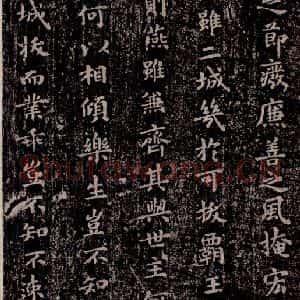 之節廢廉善之風掩宏
雖二城幾於可拔霸王
則燕雖兼齊其與世主何
何以相傾樂生豈不知
城拔而業乖豈不知不速
shufawang.CN